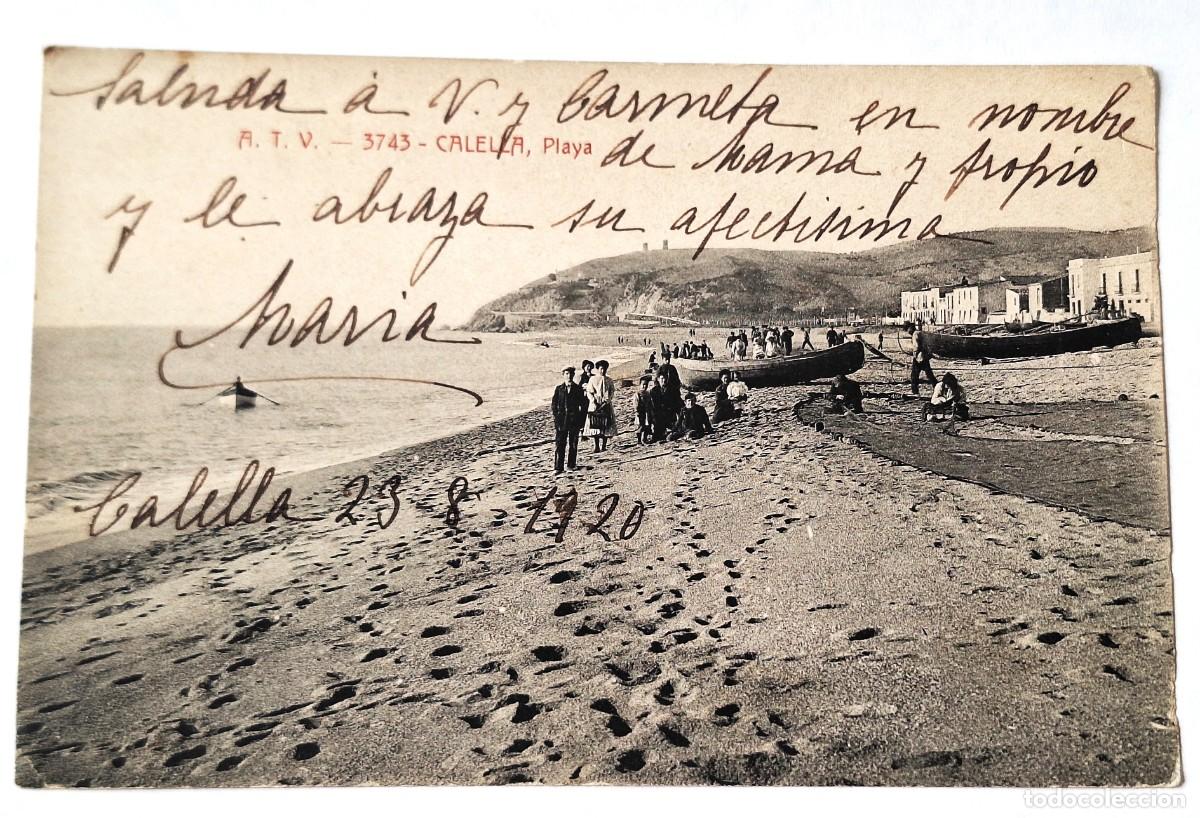 Saluda á V. y Carmeta en nombre
A. T. V. — 3743 - CALELLA, Playa
de Mama y propio
y le abraza su afectisima
Maria
Calella 23 8 - 1920
todocoleccion